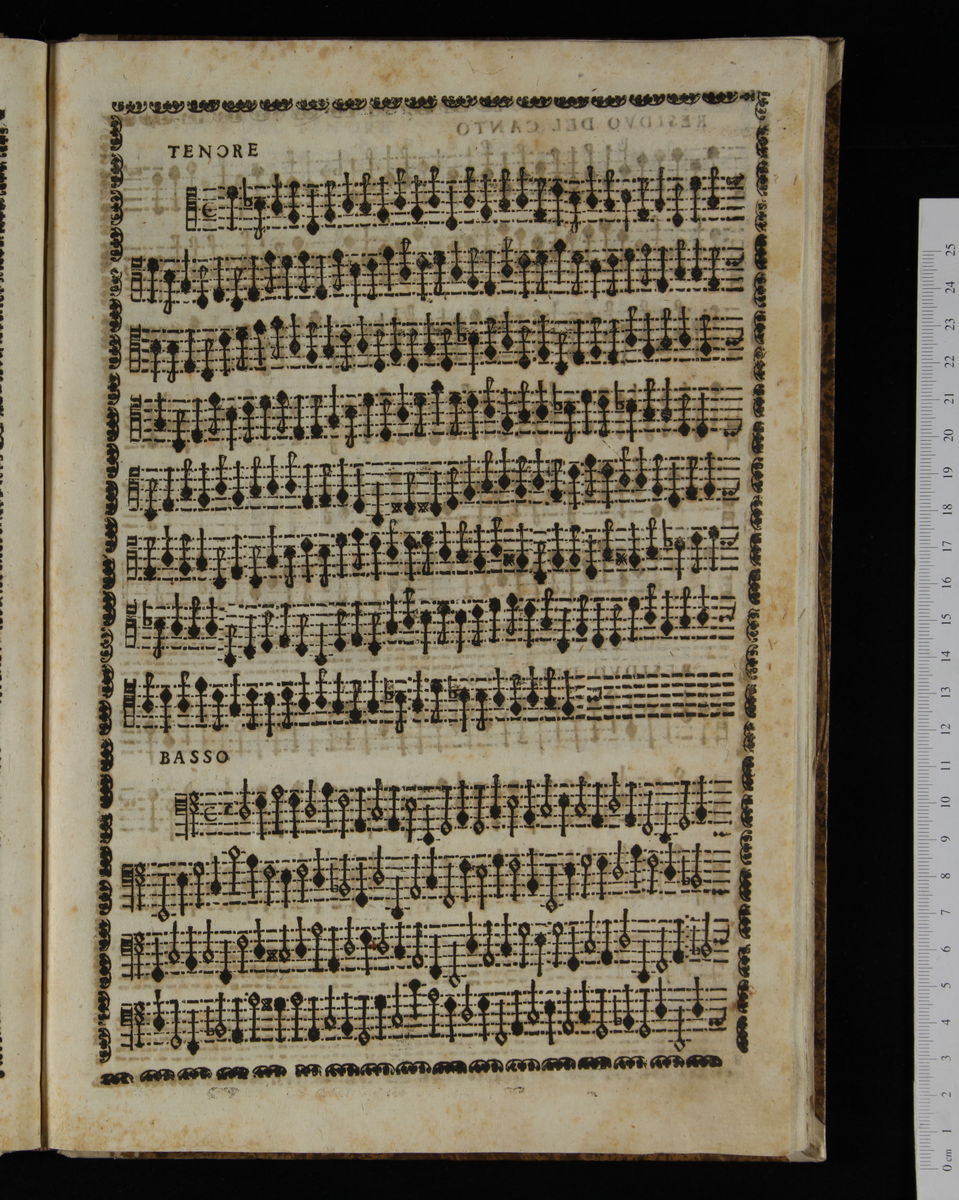 TENORE
BASSO
0 cm 1 2 3 4 5 6 7 8 9 10 11 12 13 14 15 16 17 18 19 20 21 22 23 24 25